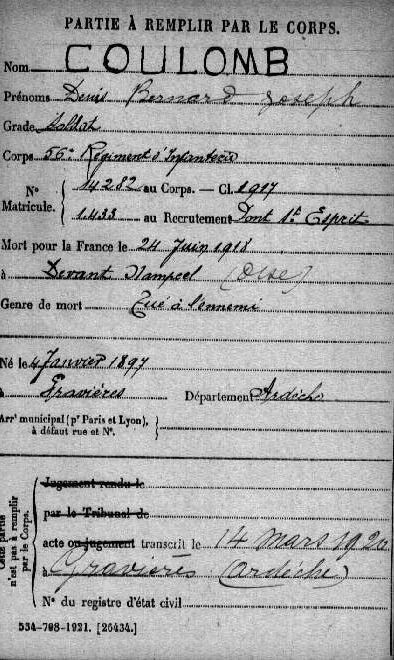 PARTIE À REMPLIR PAR LE CORPS.
Nom COULOMB
Prénoms Denis Bernard Joseph
Grade Soldat
Corps 56e Régiment d'Infanterie
N° Matricule. { 14282 au Corps. — Cl. 1917
1.433 au Recrutement Pont St Esprit
Mort pour la France le 24 Juin 1918
à Devant Mampcel (Oise)
Genre de mort Tué à l'ennemi
Né le 4 Janvier 1897
à Gravières Département Ardèche
Arrt municipal (pr Paris et Lyon), à défaut rue et N°. }
Cette partie n'est pas à remplir par le Corps.
Jugement rendu le
par le Tribunal de
acte ou jugement transcrit le 14 mars 1920
à Gravières (Ardèche)
N° du registre d'état civil
534-708-1921. [26434.]